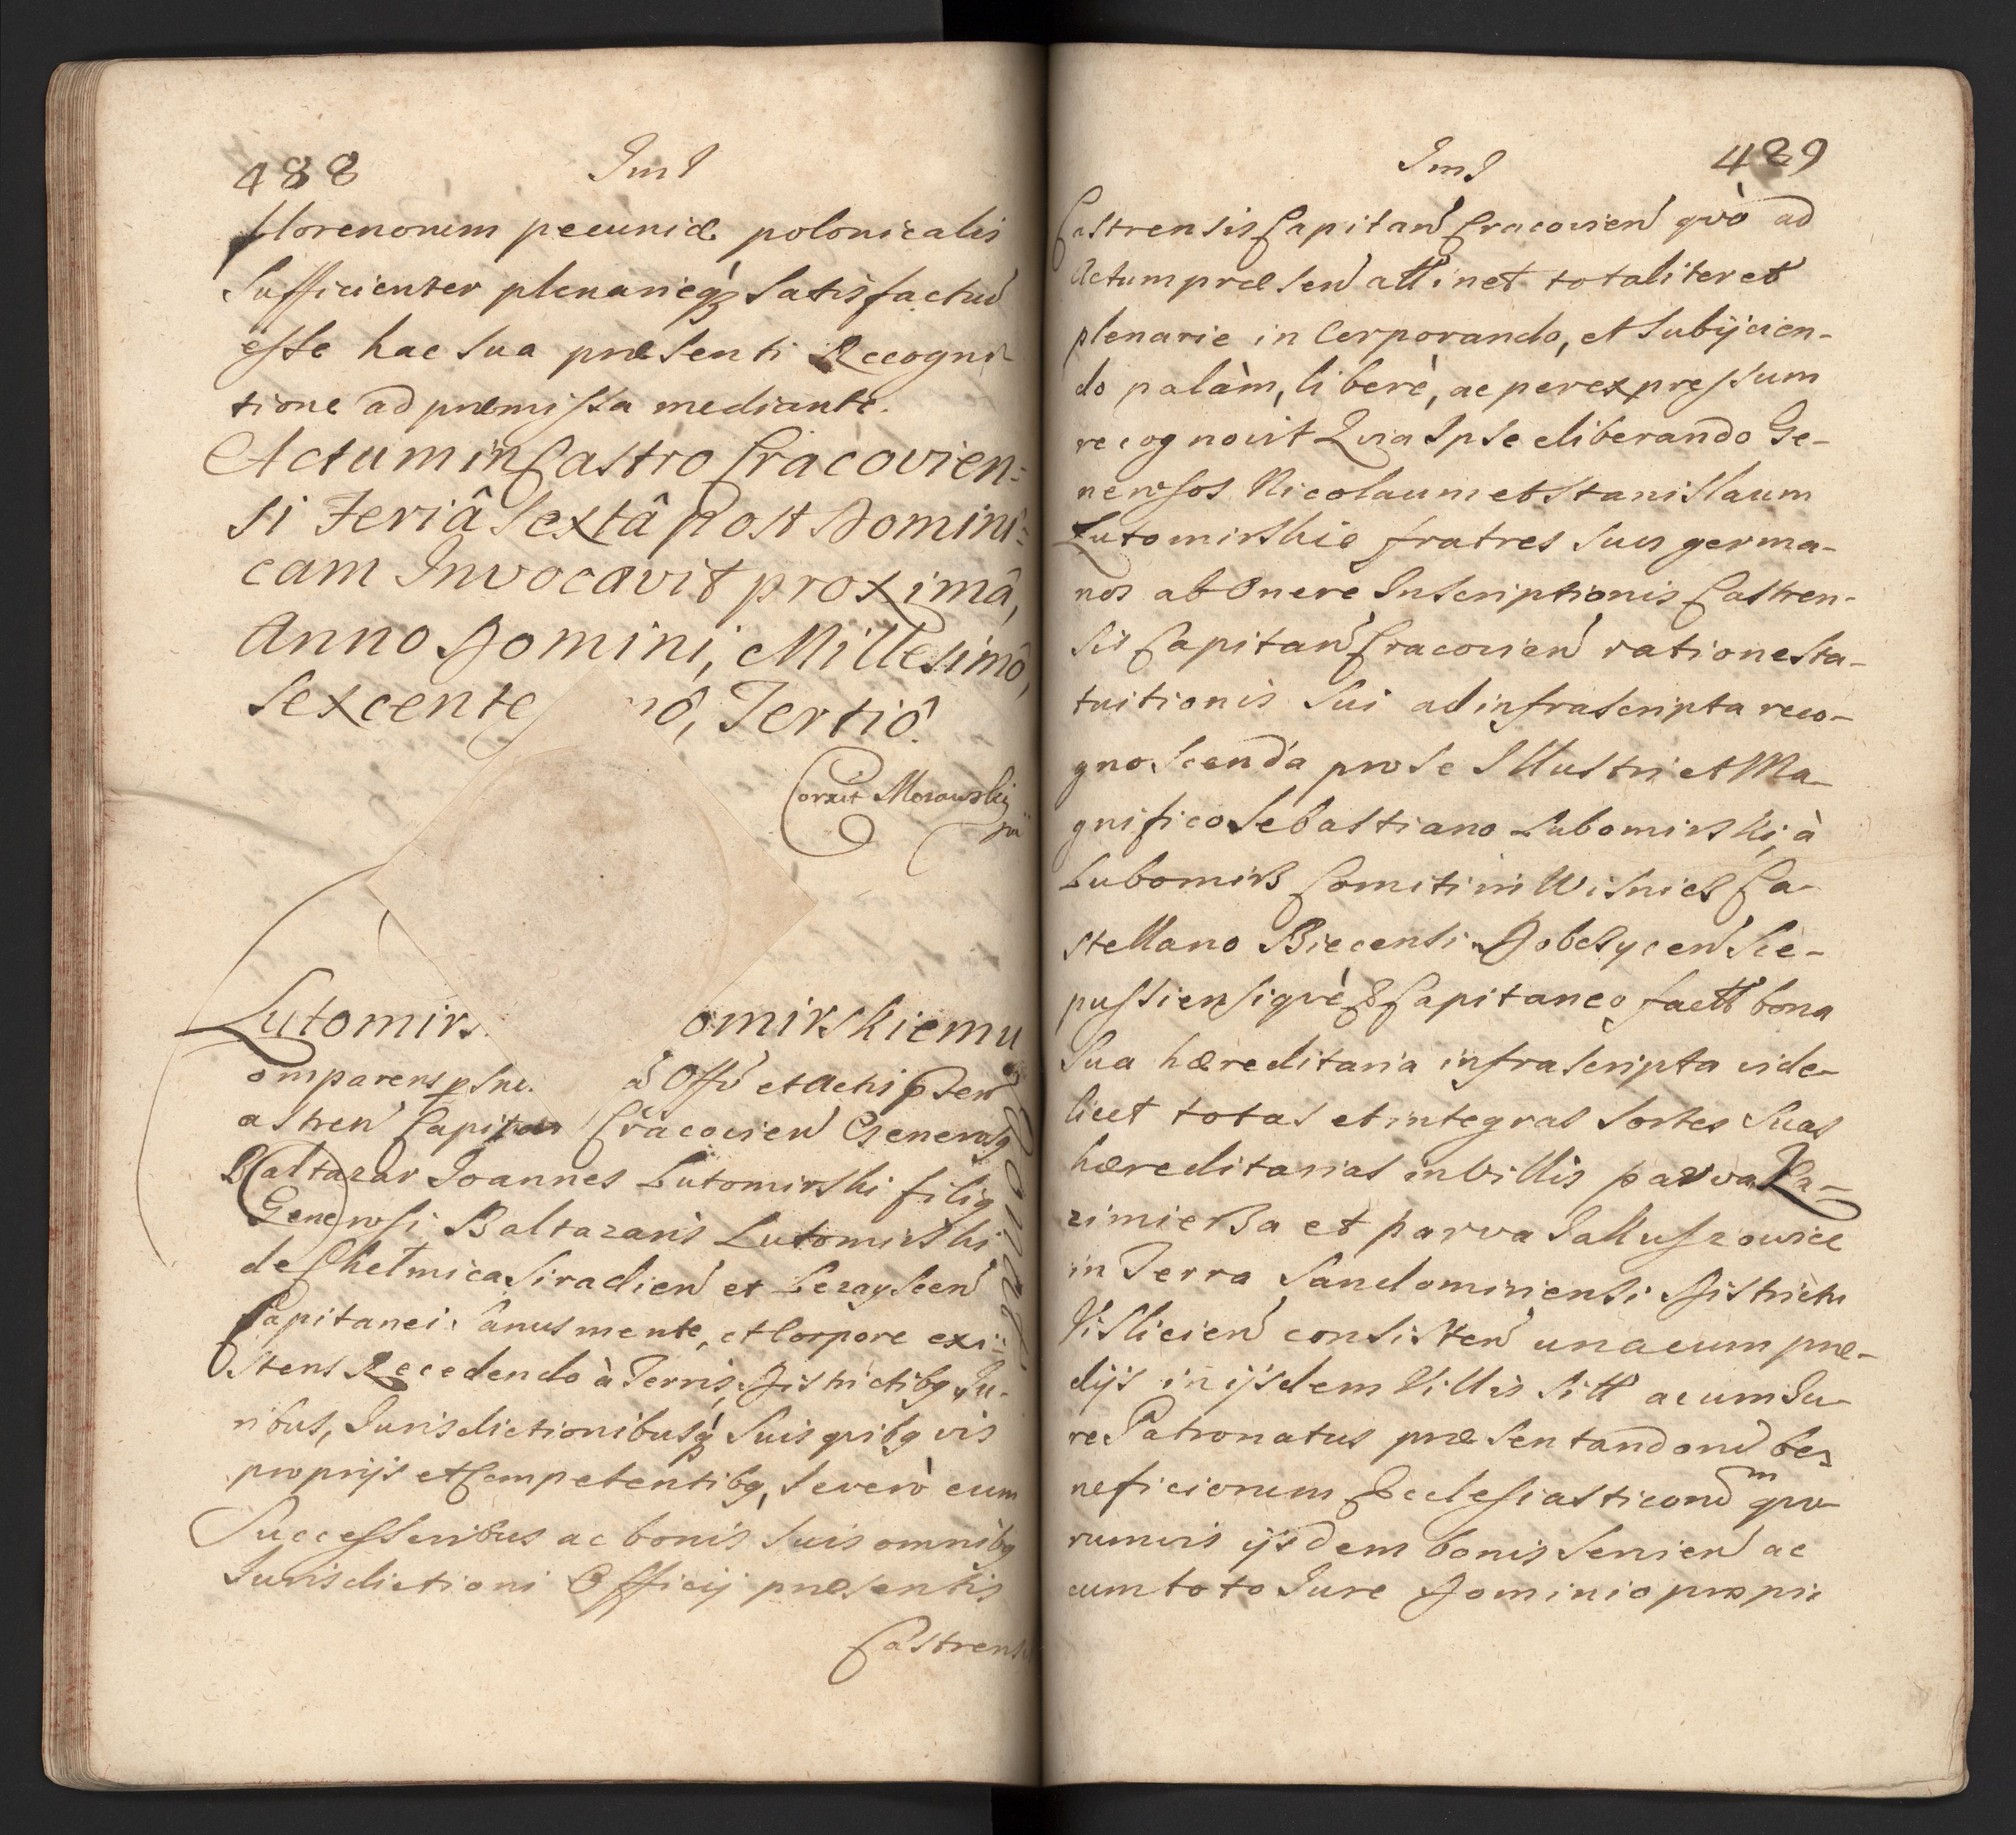 488 ImI
florenorum pecuniæ polonicalis
sufficienter plenarieqz satisfactũ
esse hac sua præsenti Recogni-
tione ad præmissa mediante.
Actum in Castro Cracovien=
si Feriâ Sextâ post Domini=
cam Invocavit proximâ,
Anno Domini, Millesimô,
Sexcente nô, Tertiô.
Corrxit Morawski
Lutomirs. omirskiemu
omparens p sne. ad Offũ et Acta pˢen
astren Capitan Cracovien Generosq
Baltazar Joannes Lutomirski filiq
Generosi Baltazaris Lutomirski
de Chełmica Siradien et Lezayscen
Capitanei sanus mente, et Corpore exi=
stens Recedendo à Terris, Districtibq Ju-
ribus, Jurisdictionibusq suis quibqvis
proprijs et Competentibq, se verò cum
Successoribus ac bonis suis omnibq
Jurisdictioni Officij præsentis
Castrens
ImI 489
Castrensis Capitan Cracovien quò ad
Actum præsen attinet totaliter et
plenarie in Corporando, et subijcien-
do palàm, liberè, ac per expressum
recognovit Quia Ipse eliberando Ge-
nerosos Nicolaum et Stanislaum
Lutomirskie fratres suos germa-
nos ab Onere Inscriptionis Castren-
sis Capitan Cracovien ratione sta-
tuitionis sui ad infrascripta reco-
gnoscenda pro se Illustri et Ma-
gnifico Sebastiano Lubomirski, à
Lubomirz Comiti in Wisnicz Ca-
stellano Biecensi Dobczycen Sce-
pussiensiquè & Capitaneo, factt bona
sua hæreditaria infrascripta vide-
licet totas et integras sortes suas
hæreditarias in Villis parva Ka-
zimierza et parva Jakuszowice
in Terra Sandomiriensi Districtu
Vislicien consisten una cum præ-
dijs in ijsdem Villis sitt ac cum Ju-
re Patronatus præsentandorũ be-
neficiorum Ecclesiasticorũ m quo-
rumvis ijsdem bonis servien ac
cum toto Jure Dominio propri